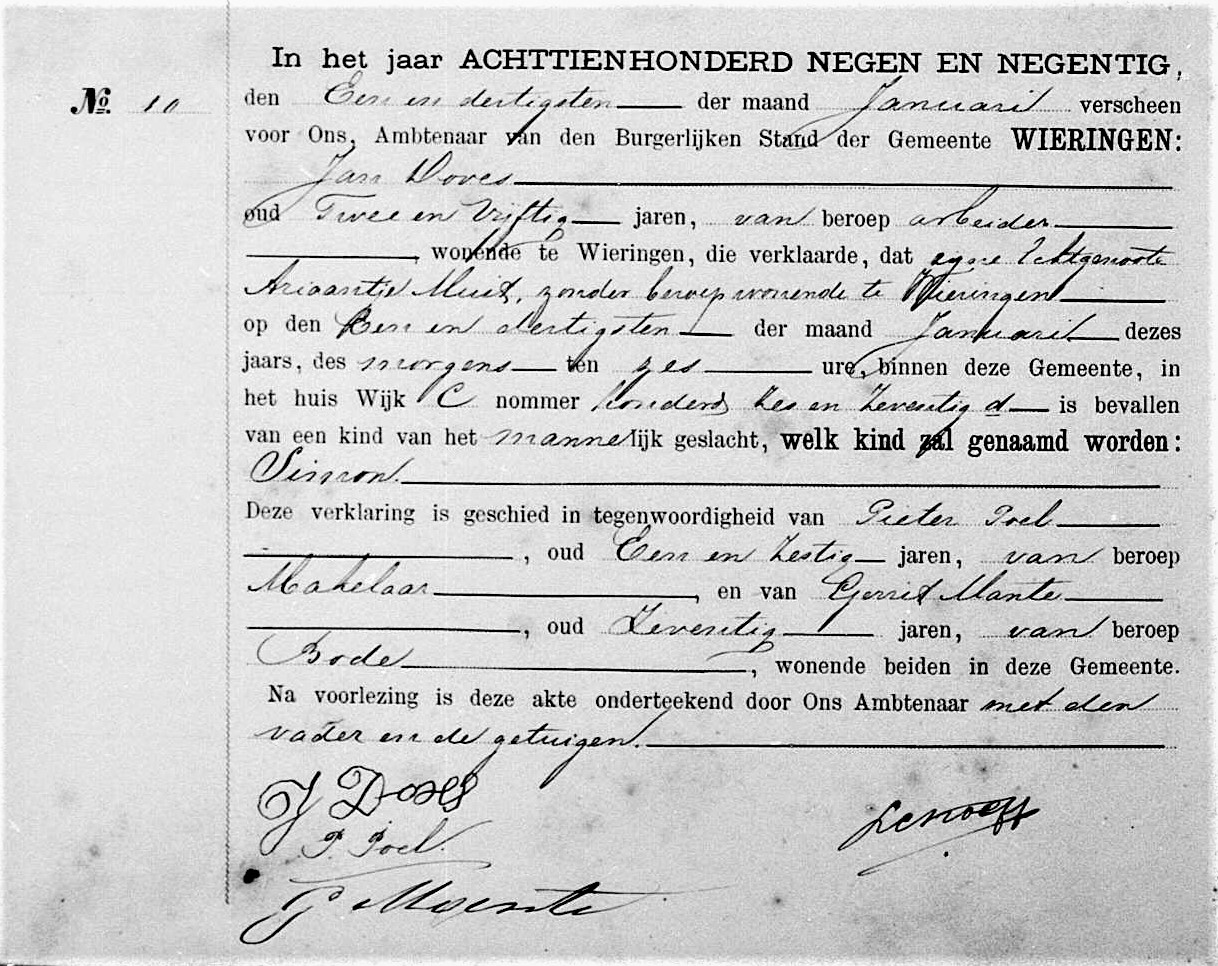 In het jaar ACHTTIENHONDERD NEGEN EN NEGENTIG,
No. 10
den Een en dertigsten der maand Januari verscheen
voor Ons, Ambtenaar van den Burgerlijken Stand der Gemeente WIERINGEN:
Jan Doves
oud Twee en Vijftig jaren, van beroep arbeider
, wonende te Wieringen, die verklaarde, dat zijne Echtgenoote
Ariaantje Muit, zonder beroep wonende te Wieringen
op den Een en dertigsten der maand Januari dezes
jaars, des morgens ten zes ure, binnen deze Gemeente, in
het huis Wijk C nommer honderd Zes en Zeventig d is bevallen
van een kind van het mannelijk geslacht, welk kind zal genaamd worden:
Simon.
Deze verklaring is geschied in tegenwoordigheid van Pieter Poel
, oud Een en Zestig jaren, van beroep
Makelaar, en van Gerrit Mante
, oud Zeventig jaren, van beroep
Bode, wonende beiden in deze Gemeente.
Na voorlezing is deze akte onderteekend door Ons Ambtenaar met den
vader en de getuigen.
J Doves
P. Poel
G Maente